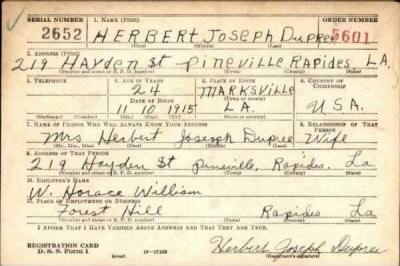 SERIAL NUMBER 1. NAME (Print) ORDER NUMBER
2652 HERBERT Joseph Dupree 5601
(First) (Middle) (Last)
2. ADDRESS (Print)
219 Hayden St Pineville Rapides. LA.
(Number and street or R. F. D. number) (Town) (County) (State)
3. TELEPHONE 4. AGE IN YEARS 5. PLACE OF BIRTH 6. COUNTRY OF CITIZENSHIP
24 MARKSVILLE
DATE OF BIRTH (Town or county)
11 10 1915 LA. U.S.A.
(Exchange) (Number) (Mo.) (Day) (Yr.) (State or country)
7. NAME OF PERSON WHO WILL ALWAYS KNOW YOUR ADDRESS 8. RELATIONSHIP OF THAT PERSON
Mrs Herbert Joseseph Dupree Wife
(Mr., Mrs., Miss) (First) (Middle) (Last)
9. ADDRESS OF THAT PERSON
219 Hayden St pineville, Rapides, La
(Number and street or R. F. D. number) (Town) (County) (State)
10. EMPLOYER'S NAME
W. Horace William
11. PLACE OF EMPLOYMENT OR BUSINESS
Forest Hill Rapides La
(Number and street or R. F. D. number) (Town) (County) (State)
I AFFIRM THAT I HAVE VERIFIED ABOVE ANSWERS AND THAT THEY ARE TRUE.
REGISTRATION CARD
D. S. S. Form 1 (over) 16-17105 Herbert Joseph Dupree
(Registrant's signature)